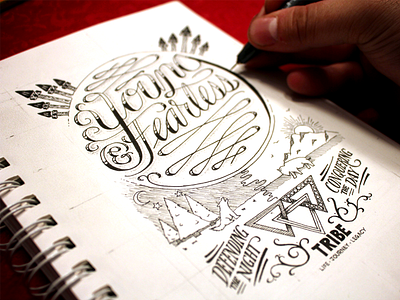 Young
& Fearless
DEFENDING
THE
NIGHT
CONQUERING
THE DAY
TRIBE
LIFE · JOURNEY · LEGACY